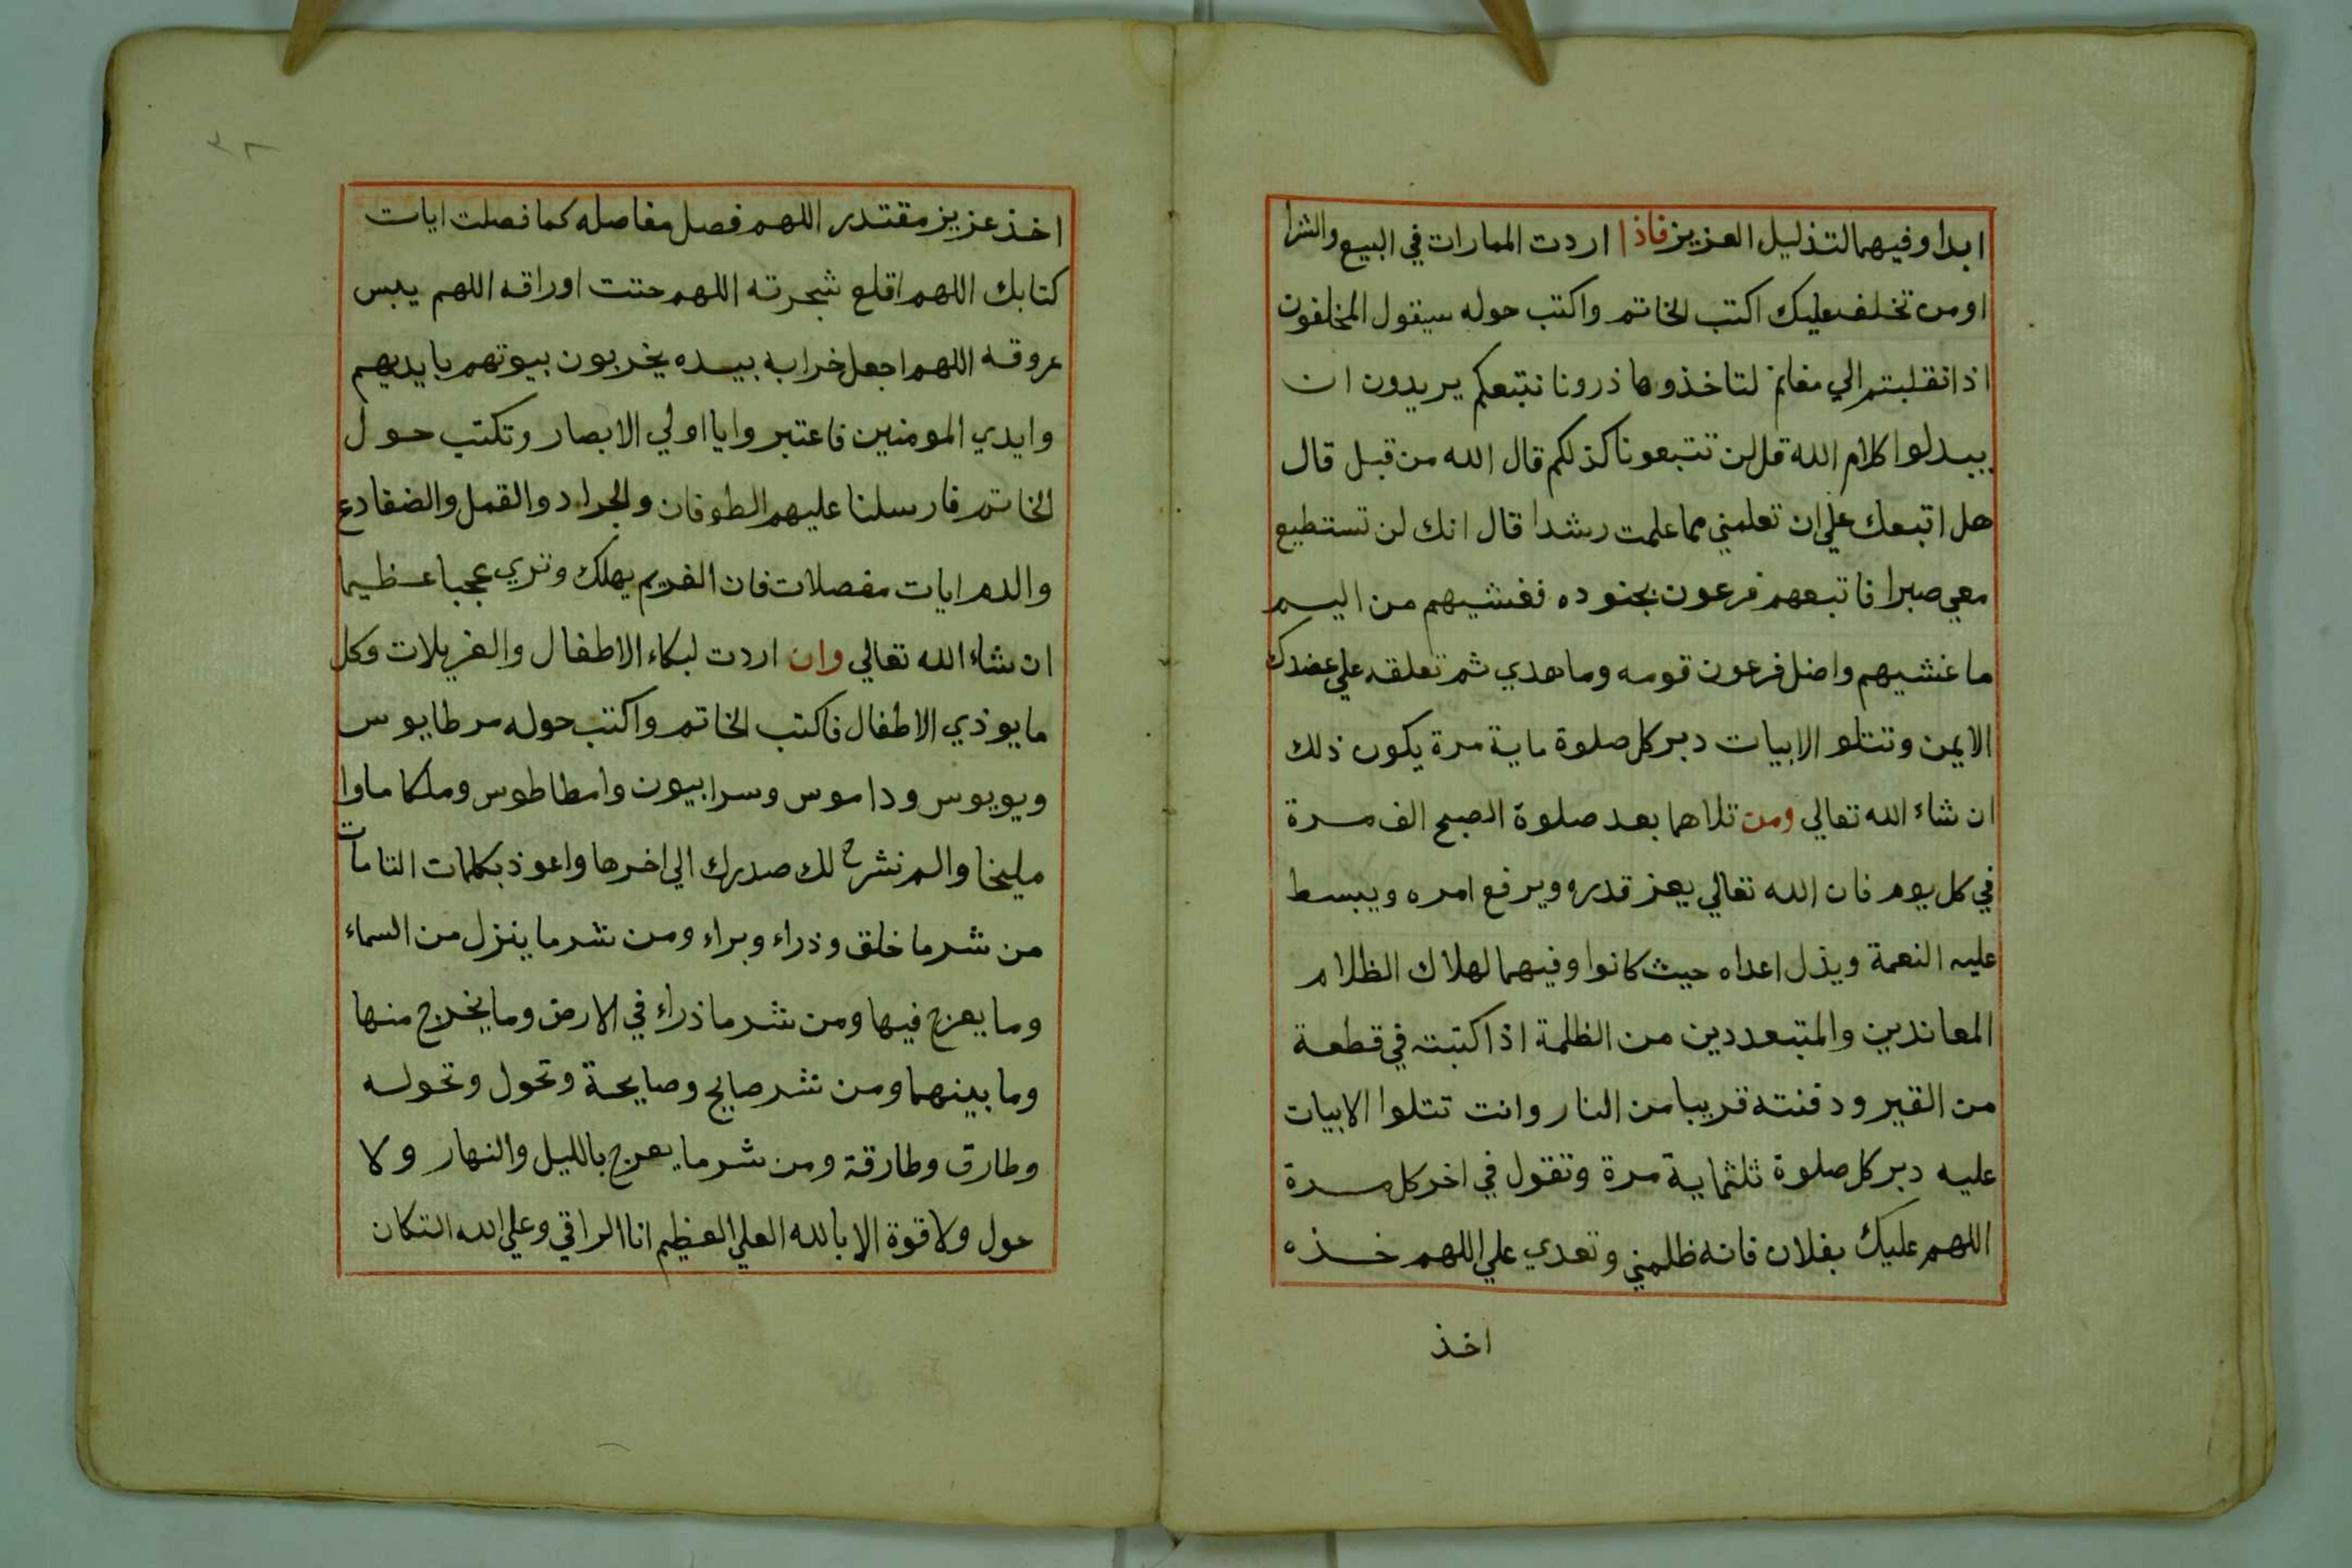 ابدا وفيهما لتذليل العزيز فاذا اردت الممارات في البيع والشرا
اومن تخلف عليك اكتب الخاتم واكتب حوله سيقول المخلفون
اذا نقلبتم الي مغانم لتاخذوها ذرونا نتبعكم يريدون ان
يبدلوا كلام الله قل لن تتبعونا كذلكم قال الله من قبل قال
هل اتبعك علي ان تعلمني مما علمت رشدا قال انك لن تستطيع
معي صبرا فاتبعهم فرعون بجنوده فغشيهم من اليم
ما غشيهم واضل فرعون قومه وما هدي ثم تعلقه علي عضدك
الايمن وتتلو الابيات دبر كل صلوة ماية مرة يكون ذلك
ان شاء الله تعالي ومن تلاهما بعد صلوة الصبح الف مرة
في كل يوم فان الله تعالي يعز قدره ويرفع امره ويبسط
عليه النعمة ويذل اعداه حيث كانوا وفيهما لهلاك الظلام
المعاندين والمتبعددين من الظلمة اذا كتبته في قطعة
من القير ودفنته قريبا من النار وانت تتلوا الابيات
عليه دبر كل صلوة ثلثماية مرة وتقول في اخر كل مرة
اللهم عليك بفلان فانه ظلمني وتعدي علي اللهم خذه
اخذ
٣٨
اخذ عزيز مقتدر اللهم فصل مفاصله كما فصلت ايات
كتابك اللهم اقلع شجرته اللهم حتت اوراقه اللهم يبس
عروقه اللهم اجعل خرابه بيده يخربون بيوتهم بايديهم
وايدي المومنين فاعتبروا يا اولي الابصار وتكتب حول
الخاتم فارسلنا عليهم الطوفان والجراد والقمل والضفادع
والدم ايات مفصلات فان الغريم يهلك وتري عجبا عظيما
ان شاء الله تعالي وان اردت لبكاء الاطفال والغريلات وكل
ما يوذي الاطفال فاكتب الخاتم واكتب حوله مرطايوس
ويويوس وداموس وسرابيون وامطاطوس وملكاماوا
مليخا والم نشرح لك صدرك الي اخرها واعوذ بكلمات التامات
من شر ما خلق وذراء وبراء ومن شر ما ينزل من السماء
وما يعرج فيها ومن شر ما ذراء في الارض وما يخرج منها
وما بينهما ومن شر صايح وصايحة وتحول وتحوله
وطارق وطارقة ومن شر ما يعرج بالليل والنهار ولا
حول ولا قوة الا بالله العلي العظيم انا الراقي وعلي الله التكلان